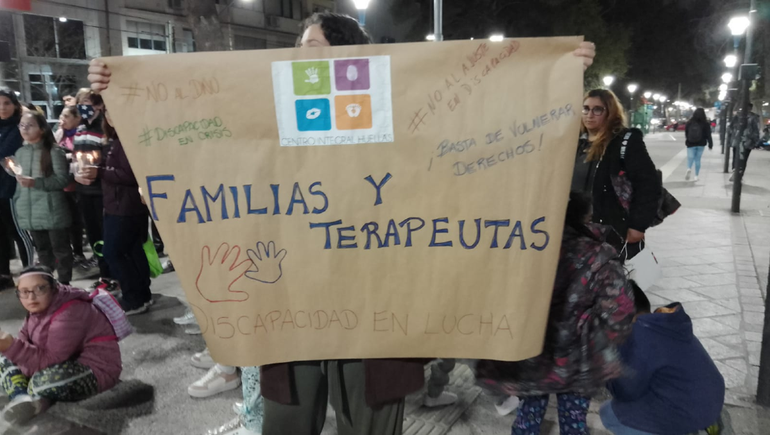 #NO AL DNU
#DISCAPACIDAD
EN CRISIS
CENTRO INTEGRAL HUELLAS
#NO AL AJUSTE
EN DISCAPACIDAD
¡BASTA DE VULNERAR
DERECHOS!
FAMILIAS Y
TERAPEUTAS
DISCAPACIDAD EN LUCHA